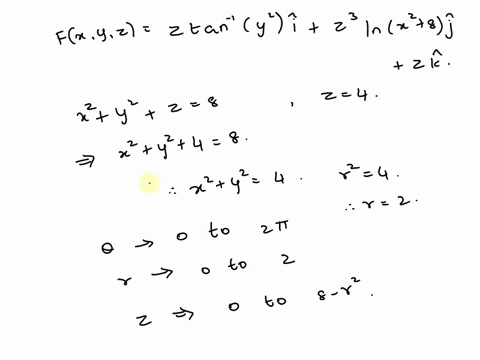 F(x,y,z) = z tan⁻¹(y²) î + z³ ln(x²+8) ĵ
+ z k̂.
x² + y² + z = 8 , z = 4.
⇒ x² + y² + 4 = 8.
∴ x² + y² = 4. r² = 4.
∴ r = 2.
θ → 0 to 2π
r → 0 to 2
z ⇒ 0 to 8-r².